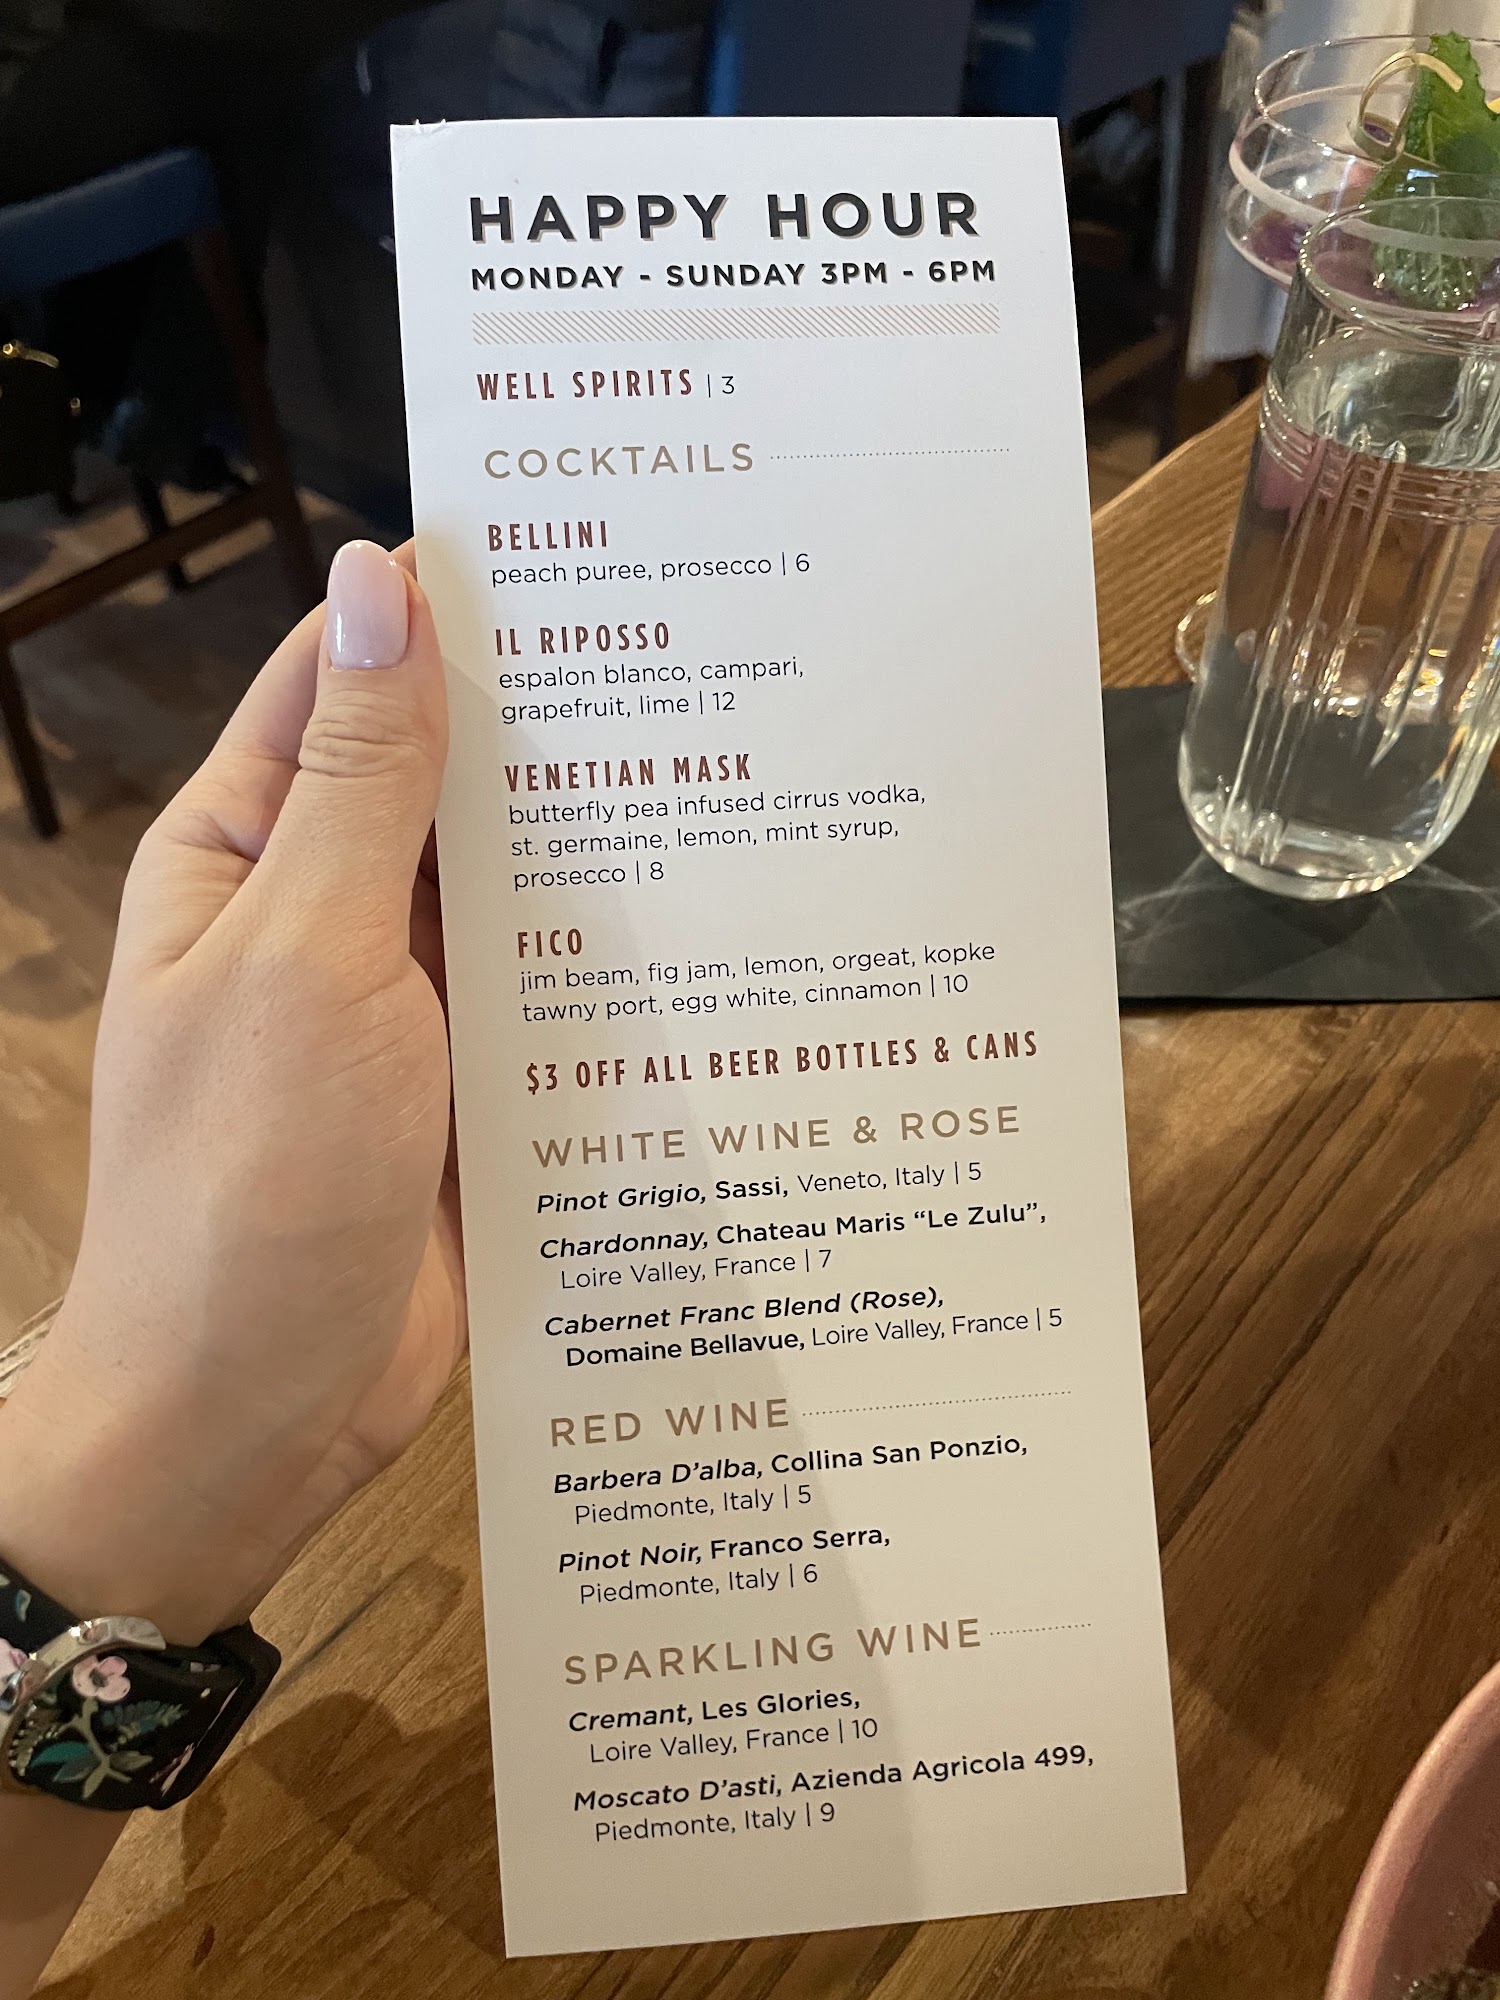 HAPPY HOUR
MONDAY - SUNDAY 3PM - 6PM
WELL SPIRITS | 3
COCKTAILS
BELLINI
peach puree, prosecco | 6
IL RIPOSSO
espalon blanco, campari,
grapefruit, lime | 12
VENETIAN MASK
butterfly pea infused cirrus vodka,
st. germaine, lemon, mint syrup,
prosecco | 8
FICO
jim beam, fig jam, lemon, orgeat, kopke
tawny port, egg white, cinnamon | 10
$3 OFF ALL BEER BOTTLES & CANS
WHITE WINE & ROSE
Pinot Grigio, Sassi, Veneto, Italy | 5
Chardonnay, Chateau Maris “Le Zulu”,
Loire Valley, France | 7
Cabernet Franc Blend (Rose),
Domaine Bellavue, Loire Valley, France | 5
RED WINE
Barbera D’alba, Collina San Ponzio,
Piedmonte, Italy | 5
Pinot Noir, Franco Serra,
Piedmonte, Italy | 6
SPARKLING WINE
Cremant, Les Glories,
Loire Valley, France | 10
Moscato D’asti, Azienda Agricola 499,
Piedmonte, Italy | 9